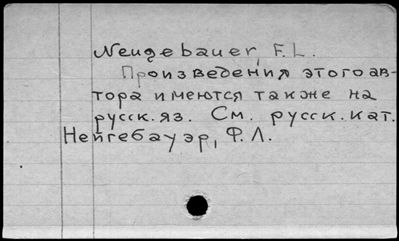 Neugebauer, F.L.
Произведения этого ав-
тора имеются также на
русск. яз. См. русск. кат.
Нейгебауэр, Ф.Л.